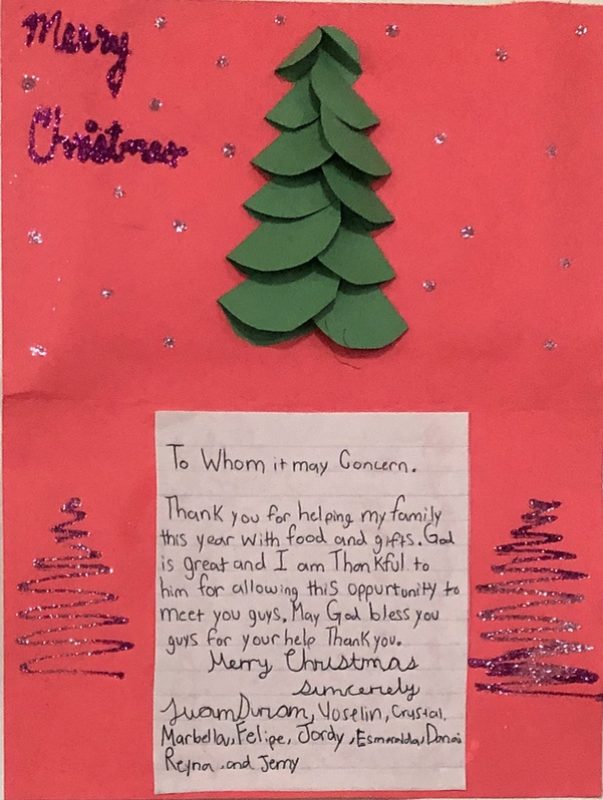 Merry
Christmas
To Whom it may Concern.
Thank you for helping my family
this year with food and gifts. God
is great and I am Thankful to
him for allowing this oppurtunity to
meet you guys. May God bless you
guys for your help Thank you.
Merry Christmas
Sincerely
Yoselin, Crystal,
Marbella, Felipe, Jordy, Esmeralda,
Reyna and Jemy